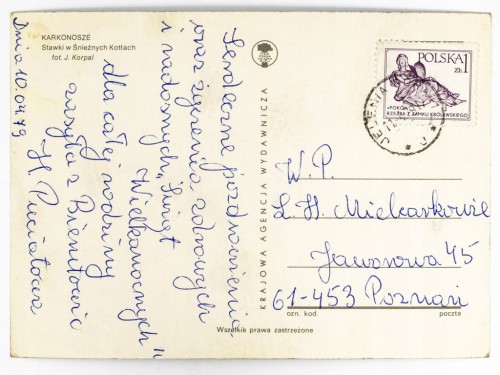 KARKONOSZE
Stawki w Śnieżnych Kotłach
fot. J. Korpal
Dnia 10.04.79
Serdeczne pozdrowienia
oraz życzenia zdrowych
i radosnych „Świąt
Wielkanocnych"
dla całej rodziny
zasyła z
H.
KRAJOWA AGENCJA WYDAWNICZA
POLSKA 1
ZŁ
«POKÓJ»
RZEŹBA Z ZAMKU KRÓLEWSKIEGO
JELENIA
W. P.
L. H. Mielcarkowie
Jaworowa 45
61-453 Poznań
ozn. kod.
poczta
Wszelkie prawa zastrzeżone